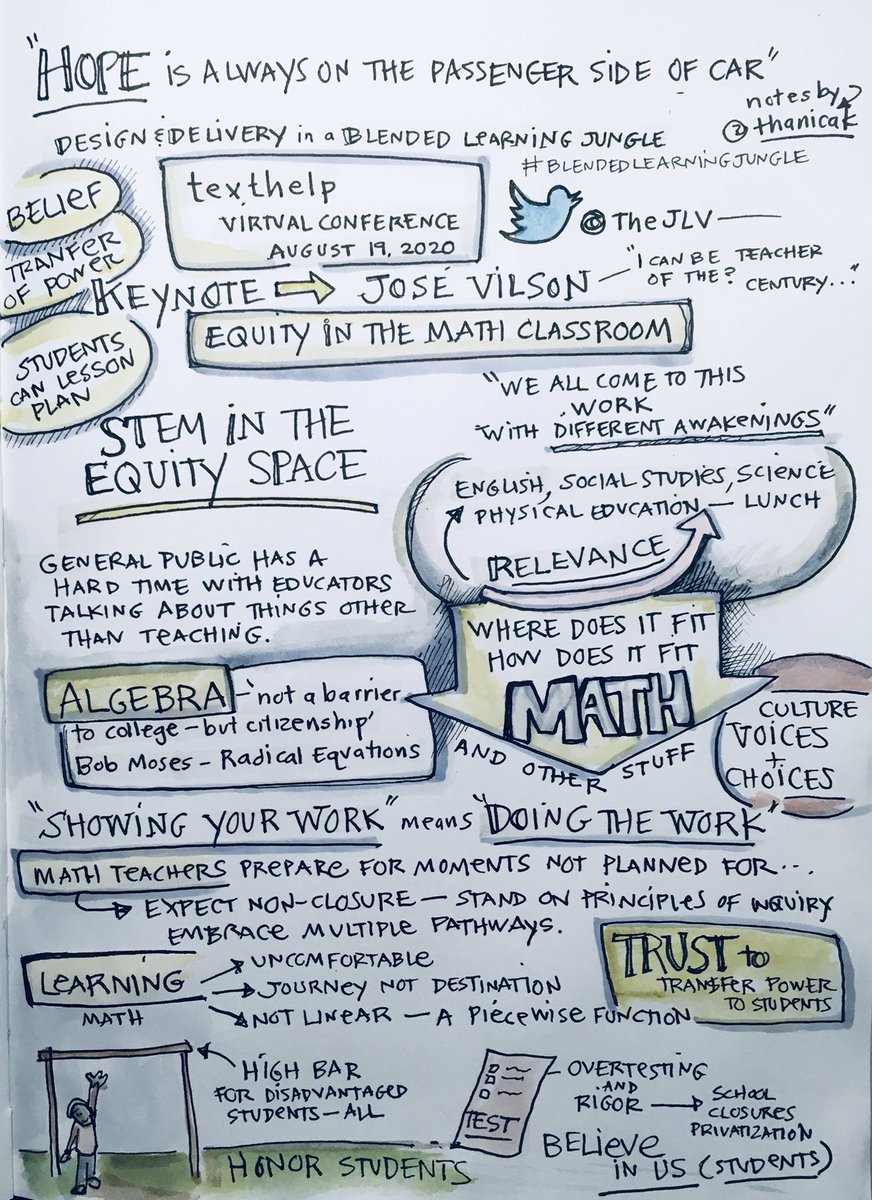 "HOPE is ALWAYS ON THE PASSENGER SIDE OF CAR"
notes by
@thanicak
DESIGN & DELIVERY in a BLENDED LEARNING JUNGLE
#BLENDEDLEARNINGJUNGLE
BELIEF
TRANFER
OF POWER
STUDENTS
CAN LESSON
PLAN
texthelp
VIRTUAL CONFERENCE
AUGUST 19, 2020
@TheJLV
KEYNOTE → JOSÉ VILSON
"I CAN BE TEACHER
OF THE? CENTURY..."
EQUITY IN THE MATH CLASSROOM
"WE ALL COME TO THIS
WORK
WITH DIFFERENT AWAKENINGS"
STEM IN THE
EQUITY SPACE
ENGLISH, SOCIAL STUDIES, SCIENCE
PHYSICAL EDUCATION — LUNCH
RELEVANCE
GENERAL PUBLIC HAS A
HARD TIME WITH EDUCATORS
TALKING ABOUT THINGS OTHER
THAN TEACHING.
WHERE DOES IT FIT
HOW DOES IT FIT
MATH
AND OTHER STUFF
ALGEBRA - 'not a barrier
to college - but citizenship'
Bob Moses - Radical Equations
CULTURE
VOICES
+
CHOICES
"SHOWING YOUR WORK" means "DOING THE WORK"
MATH TEACHERS PREPARE FOR MOMENTS NOT PLANNED FOR...
→ EXPECT NON-CLOSURE — STAND ON PRINCIPLES OF INQUIRY
EMBRACE MULTIPLE PATHWAYS.
LEARNING
MATH
→ UNCOMFORTABLE
→ JOURNEY NOT DESTINATION
→ NOT LINEAR — A PIECEWISE FUNCTION
TRUST to
TRANSFER POWER
TO STUDENTS
HIGH BAR
FOR DISADVANTAGED
STUDENTS — ALL
HONOR STUDENTS
TEST
OVERTESTING
AND
RIGOR → SCHOOL
CLOSURES
PRIVATIZATION
BELIEVE
IN US (STUDENTS)